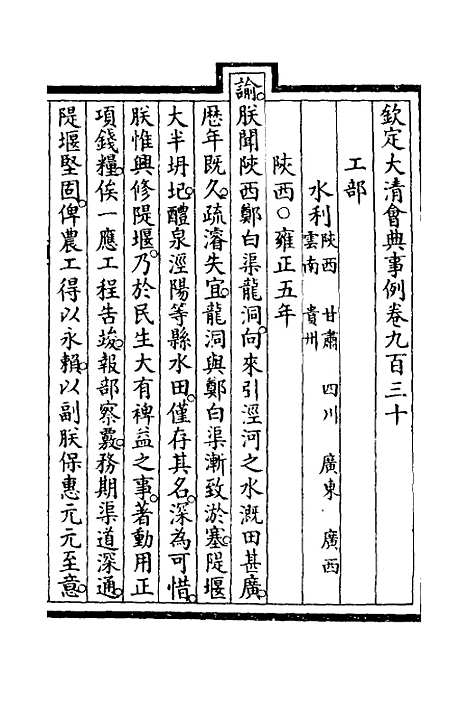 欽定大清會典事例卷九百三十
工部
水利陝西 甘肅 四川 廣東 廣西
雲南 貴州
陝西○雍正五年
諭。朕聞陝西鄭白渠龍洞。向來引涇河之水。溉田甚廣。
歷年既久。疏濬失宜。龍洞與鄭白渠漸致淤塞。隄堰
大半坍圮。醴泉涇陽等縣水田。僅存其名。深為可惜。
朕惟興修隄堰。乃於民生大有裨益之事。著動用正
項錢糧。俟一應工程告竣。報部察覈。務期渠道深通。
隄堰堅固。俾農工得以永賴。以副朕保惠元元至意。